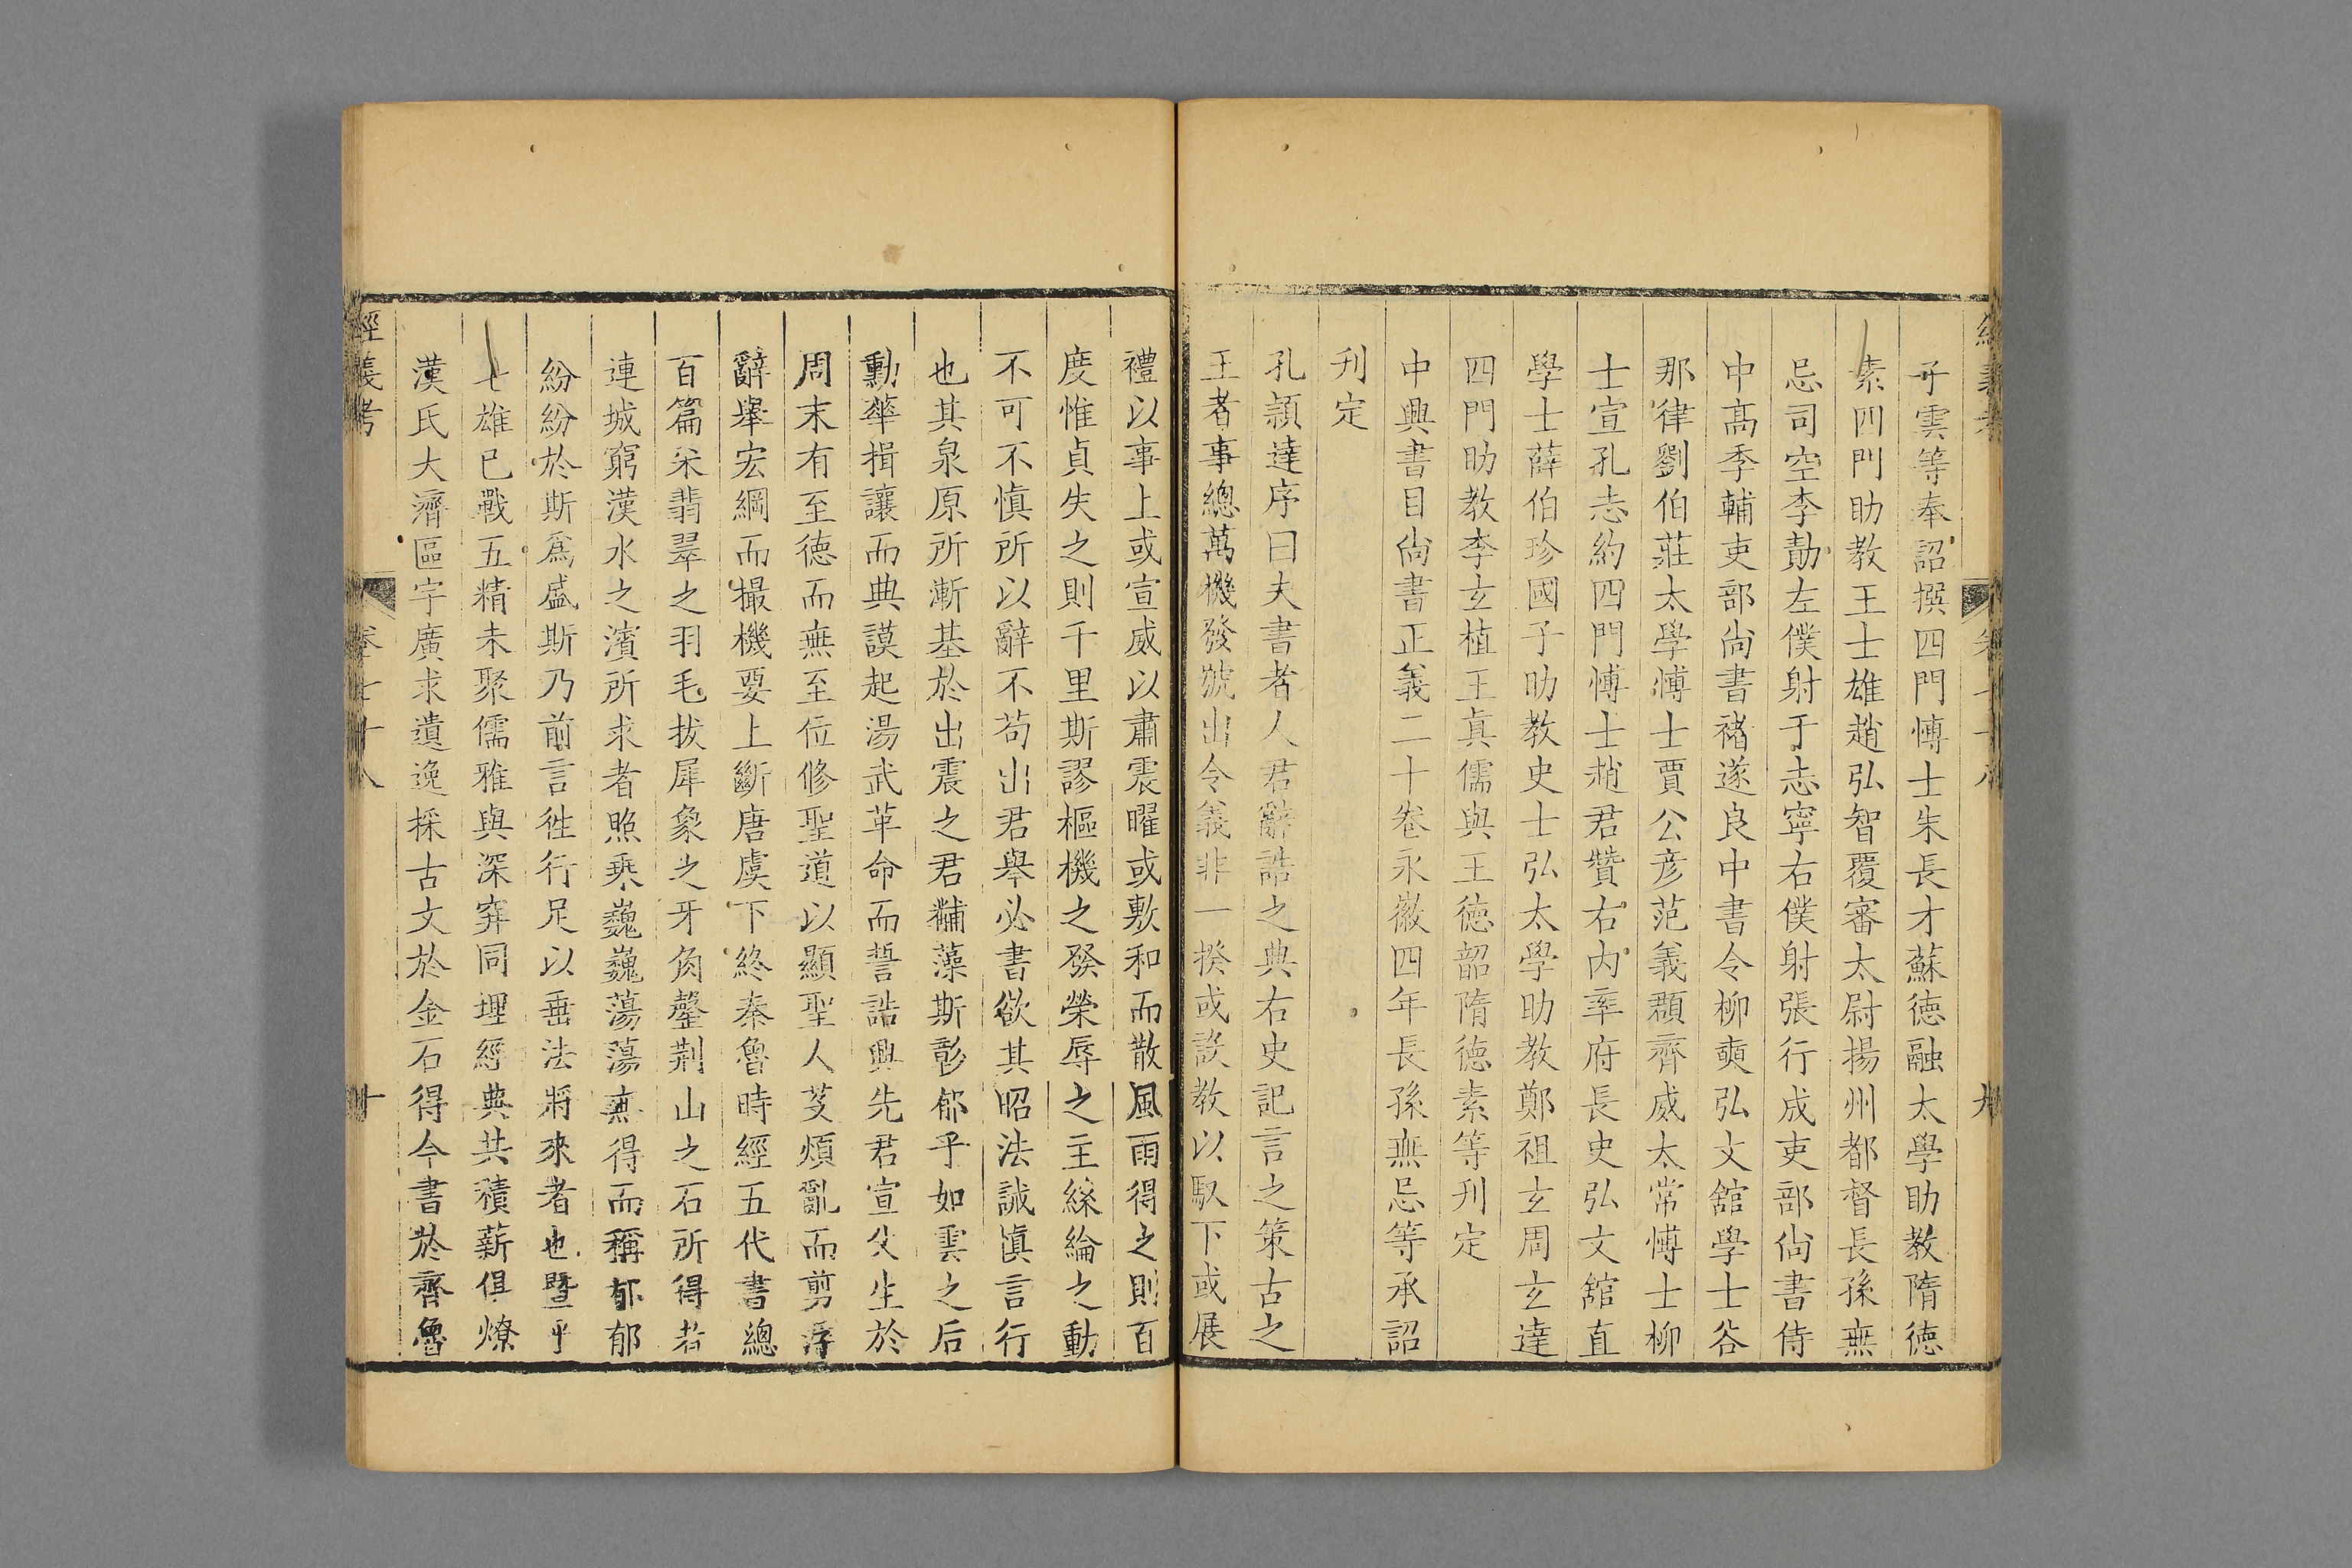 子雲等奉詔撰四門博士朱長才蘇德融太學助教隋德
素四門助教王士雄趙弘智覆審太尉揚州都督長孫無
忌司空李勣左僕射于志寧右僕射張行成吏部尚書侍
中高季輔吏部尚書褚遂良中書令柳奭弘文舘學士谷
那律劉伯莊太學博士賈公彥范義頵齊威太常博士柳
士宣孔志約四門博士趙君贊右內率府長史弘文舘直
學士薛伯珍國子助教史士弘太學助教鄭祖玄周玄達
四門助教李玄植王真儒與王德韶隋德素等刋定
中興書目尚書正義二十卷永徽四年長孫無忌等承詔
刋定
孔穎達序曰夫書者人君辭誥之典右史記言之策古之
王者事總萬機發號出令義非一揆或設教以馭下或展
禮以事上或宣威以肅震曜或敷和而散風雨得之則百
度惟貞失之則千里斯謬樞機之發榮辱之主絲綸之動
不可不慎所以辭不苟出君舉必書欲其昭法誡慎言行
也其泉原所漸基於出震之君黼藻斯彰郁乎如雲之后
勳華揖讓而典謨起湯武革命而誓誥興先君宣父生於
周末有至德而無至位修聖道以顯聖人芟煩亂而剪浮
辭舉宏綱而撮機要上斷唐虞下終秦魯時經五代書總
百篇采翡翠之羽毛拔犀象之牙角罄荆山之石所得者
連城窮漢水之濱所求者照乘巍巍蕩蕩無得而稱郁郁
紛紛於斯爲盛斯乃前言徃行足以垂法將來者也暨乎
七雄已戰五精未聚儒雅與深穽同埋經典共積薪俱燎
漢氏大濟區宇廣求遺逸採古文於金石得今書於齊魯
經義考
卷七十八
十